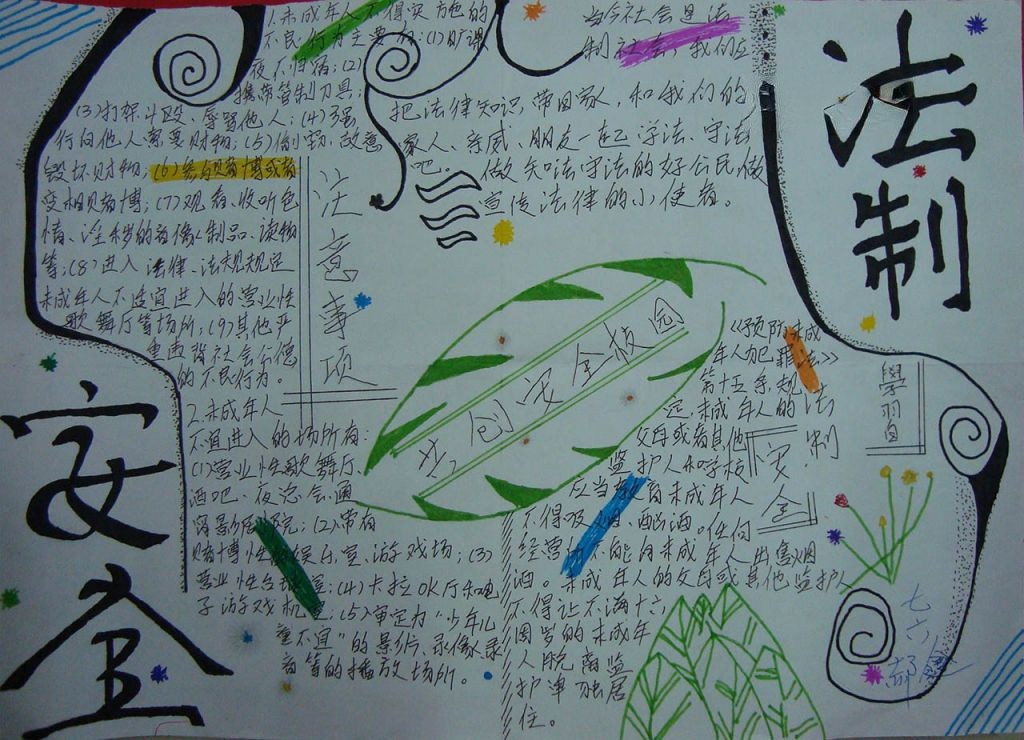 法制
安全
1.未成年人不得实施的
不良行为主要有:(1)旷课
夜不归宿;(2)
携带管制刀具;
(3)打架斗殴、辱骂他人;(4)强
行向他人索要财物;(5)偷窃、故意
毁坏财物;(6)参与赌博或者
变相赌博;(7)观看、收听色
情、淫秽的音像制品、读物
等;(8)进入法律、法规规定
未成年人不适宜进入的营业性
歌舞厅等场所;(9)其他严
重违背社会公德
的不良行为。
2.未成年人
不宜进入的场所有:
(1)营业性歌舞厅、
酒吧、夜总会、通
宵影院;(2)带有
赌博性娱乐室、游戏场;(3)
营业性台球室;(4)卡拉OK厅和电
子游戏机室;(5)审定为“少年儿
童不宜”的影片、录像、录
音等的播放场所。
注意事项
当今社会是法
制社会,我们应
把法律知识,带回家,和我们的
家人、亲戚、朋友一起学法、守法
吧。做知法守法的好公民,做
宣传法律的小使者。
共创安全校园
《预防未成
年人犯罪法》
第十五条规
定,未成年人的
父母或者其他
监护人和学校
应当教育未成年人
不得吸烟、酗酒。任何
经营场所不能向未成年人出售烟
酒。未成年人的父母或其他监护人
不得让不满十六
周岁的未成年
人脱离监
护单独居
住。
法制
安全
學習自
七六
郝